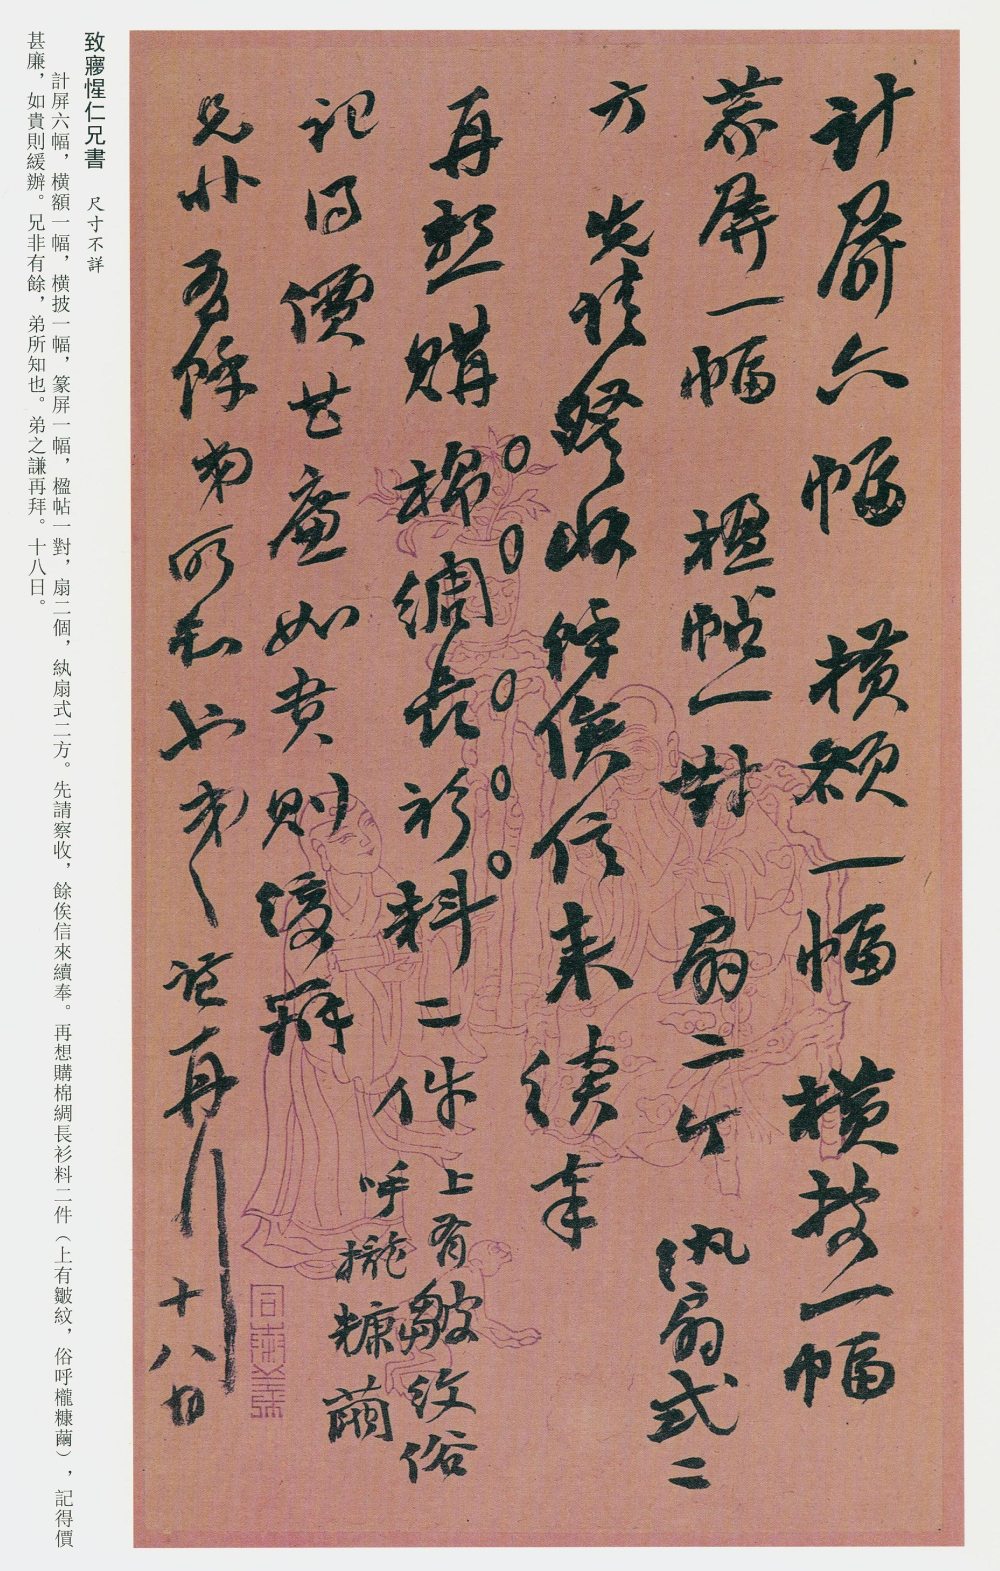 計屏六幅 橫額一幅 橫披一幅
篆屏一幅 楹帖一對 扇二个 紈扇式二
方 先請察收 餘俟信來續奉
再想購棉綢長衫料二件 上有皺紋俗
呼櫳糠藺
記得價甚廉如貴則緩辦
兄非有餘弟所知也弟之謙再拜 十八日
致㝱惺仁兄書 尺寸不詳
計屏六幅，橫額一幅，橫披一幅，篆屏一幅，楹帖一對，扇二個，紈扇式二方。先請察收，餘俟信來續奉。再想購棉綢長衫料二件（上有皺紋，俗呼櫳糠藺），記得價
甚廉，如貴則緩辦。兄非有餘，弟所知也。弟之謙再拜。十八日。